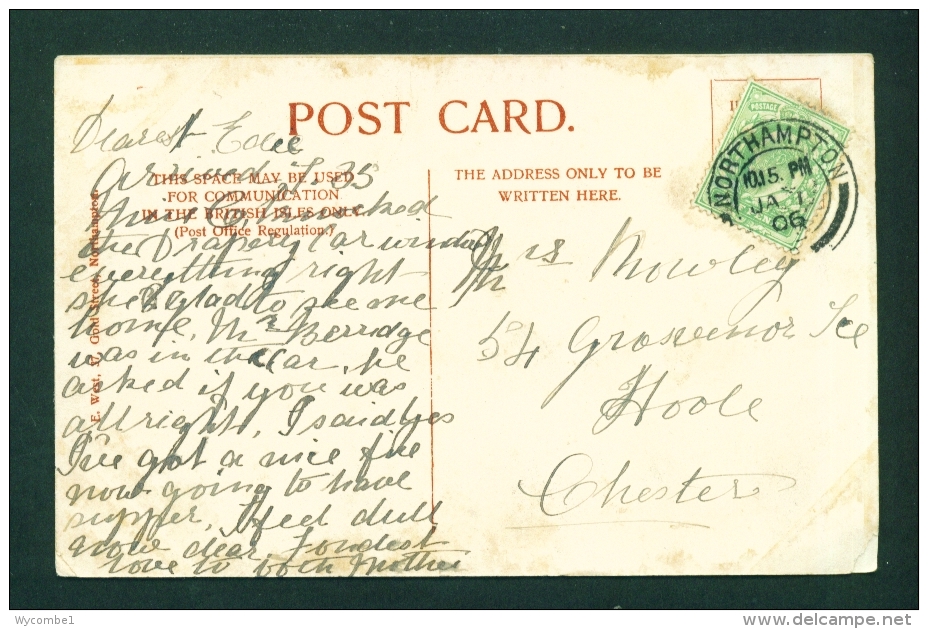 POST CARD.
THIS SPACE MAY BE USED
FOR COMMUNICATION
IN THE BRITISH ISLES ONLY.
(Post Office Regulation.)
THE ADDRESS ONLY TO BE
WRITTEN HERE.
E. West, 37, Gold Street, Northampton.
POSTAGE
NORTHAMPTON
10.15. PM
JA 1
06
Dearest Edie
Arrived 7.35
knocked
the
everything right
she glad to see me
home, Mr Berridge
was in the Car, he
asked if you was
allright, I said yes
I've got a nice fire
now going to have
supper, I feel dull
now dear, Fondest
love to both Mother
Mrs Mowley
54 Grosvenor Tce
Hoole
Chester
Wycombe1
www.delcampe.net